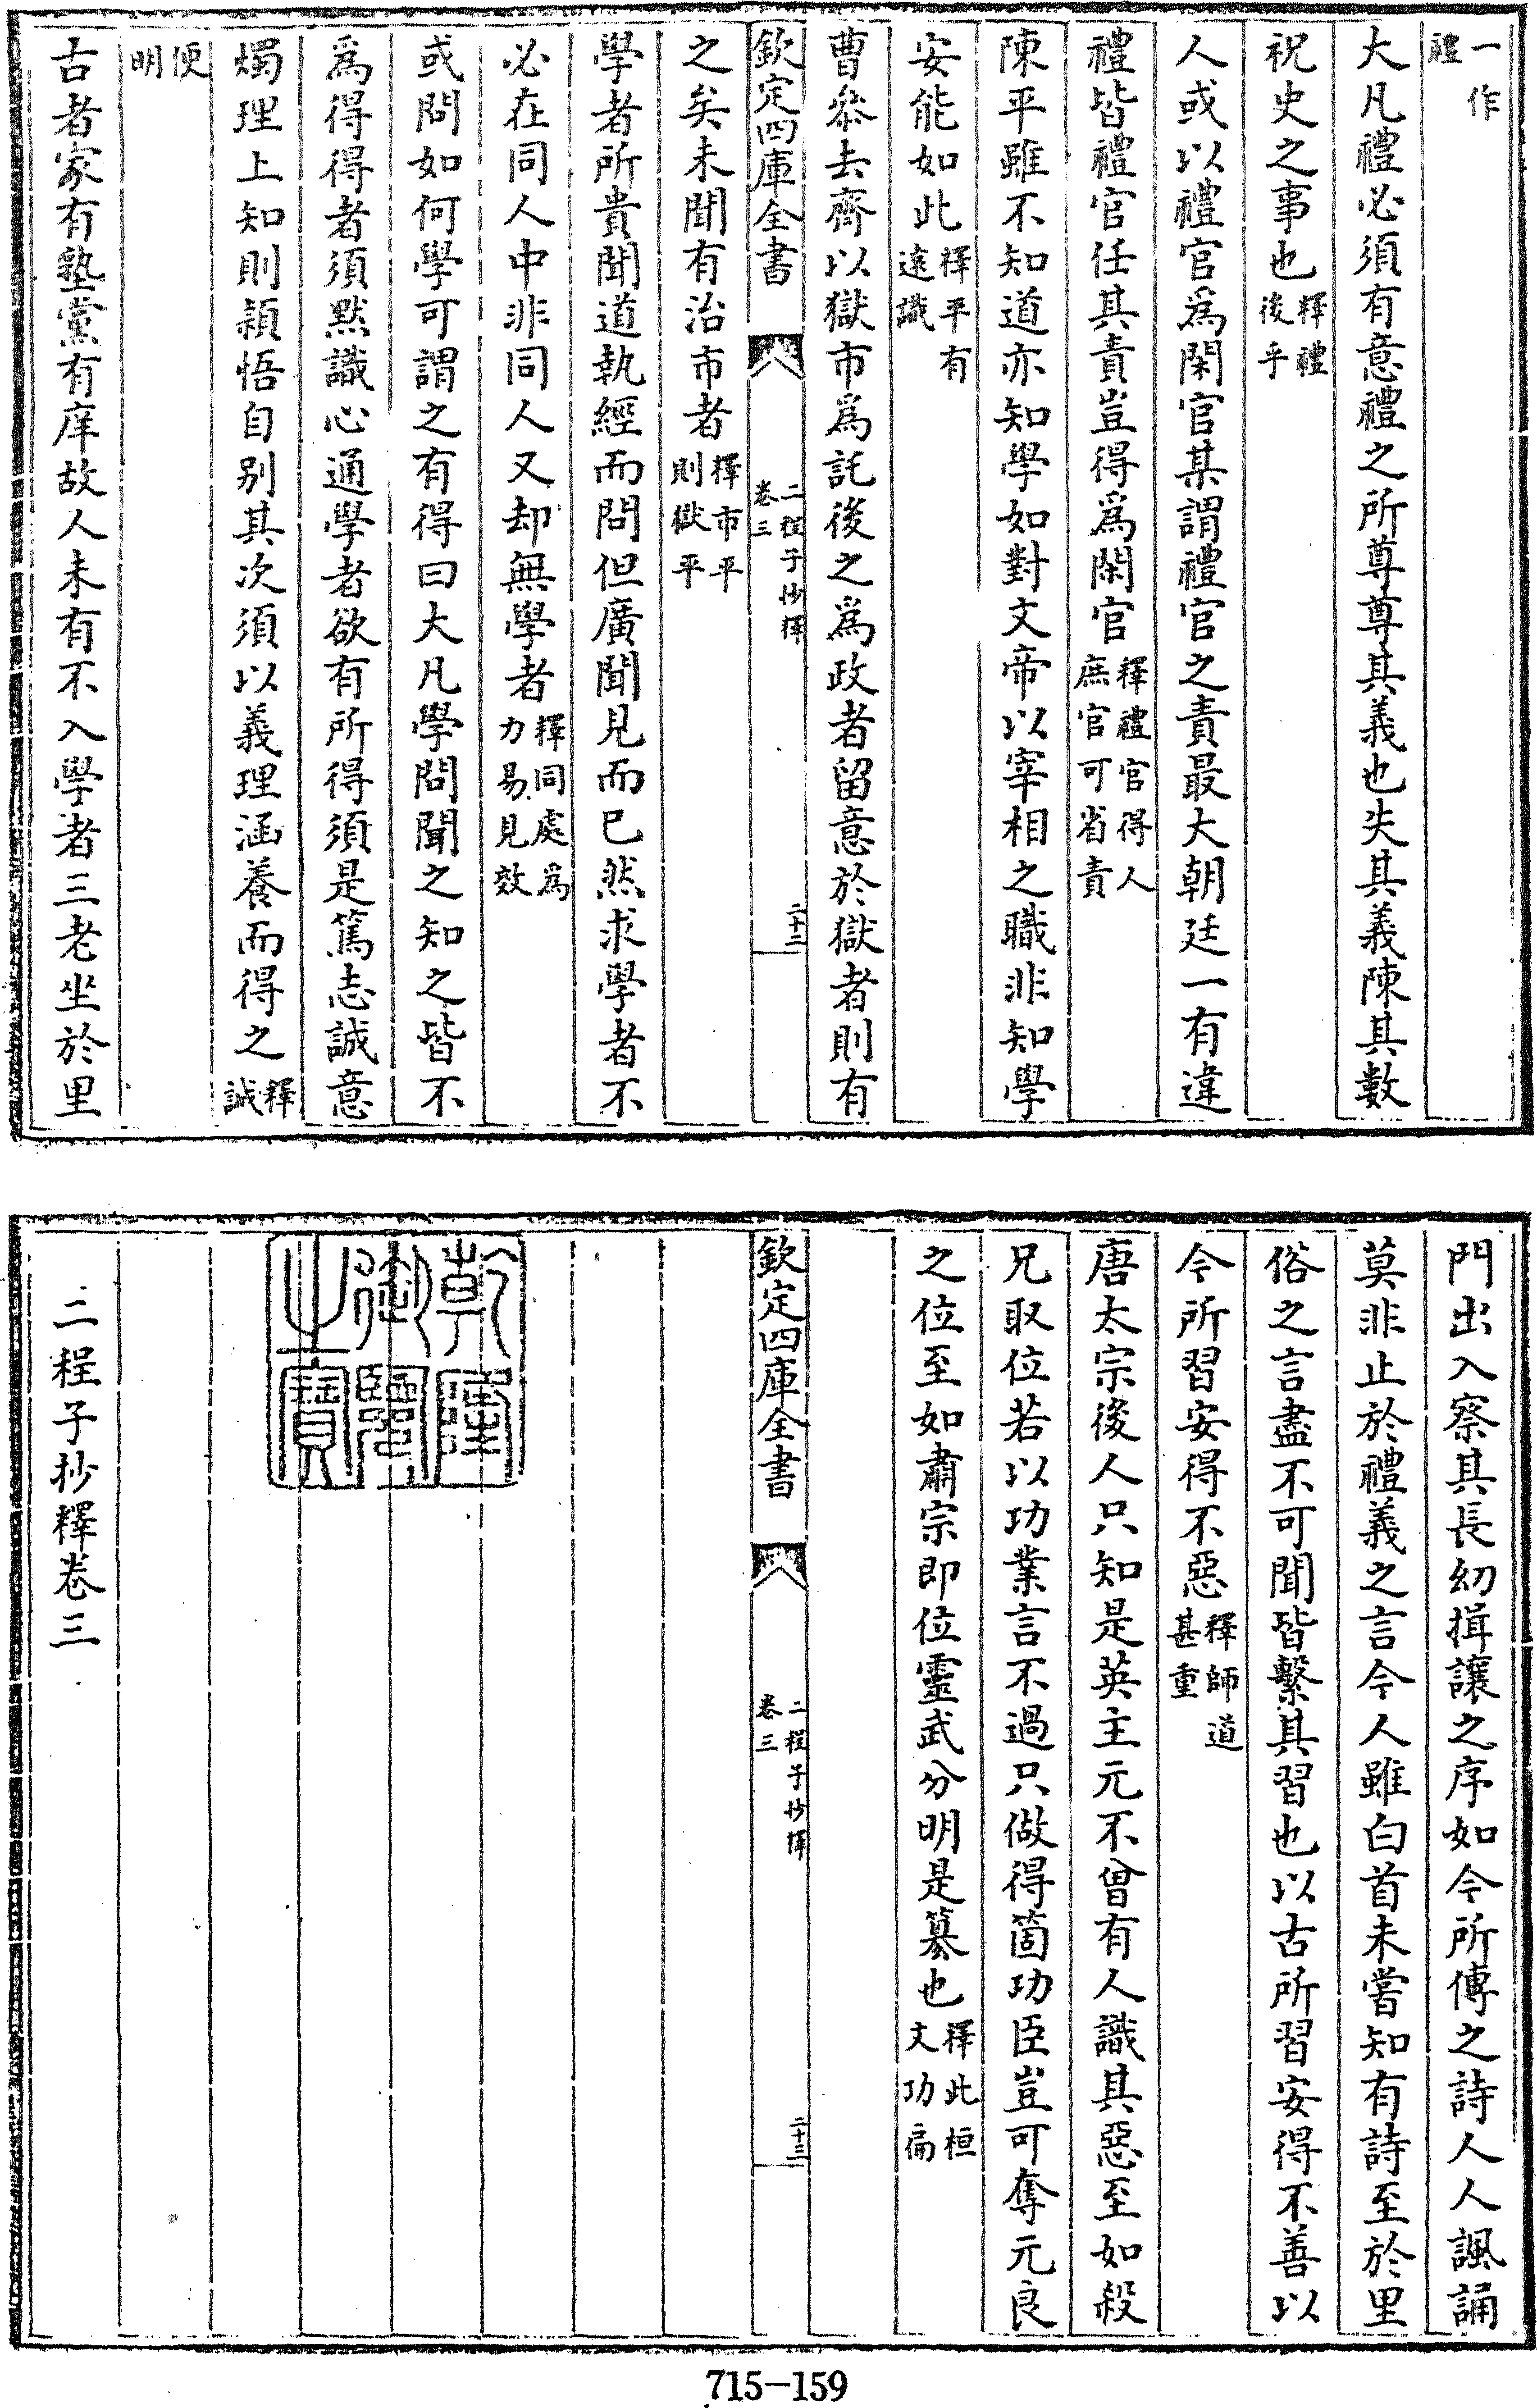 一作禮
大凡禮必須有意禮之所尊尊其義也失其義陳其數
祝史之事也釋禮後乎
人或以禮官爲閑官某謂禮官之責最大朝廷一有違
禮皆禮官任其責豈得爲閑官釋禮官得人庶官可省責
陳平雖不知道亦知學如對文帝以宰相之職非知學
安能如此釋平有遠識
曹參去齊以獄市爲託後之爲政者留意於獄者則有
欽定四庫全書
二程子抄釋
卷三
二十二
之矣未聞有治市者釋市平則獄平
學者所貴聞道執經而問但廣聞見而已然求學者不
必在同人中非同人又却無學者釋同處爲力易見效
或問如何學可謂之有得曰大凡學問聞之知之皆不
爲得得者須默識心通學者欲有所得須是篤志誠意
燭理上知則穎悟自别其次須以義理涵養而得之釋誠
便明
古者家有塾黨有庠故人未有不入學者三老坐於里
門出入察其長幼揖讓之序如今所傳之詩人人諷誦
莫非止於禮義之言今人雖白首未嘗知有詩至於里
俗之言盡不可聞皆繫其習也以古所習安得不善以
今所習安得不惡釋師道甚重
唐太宗後人只知是英主元不曾有人識其惡至如殺
兄取位若以功業言不過只做得箇功臣豈可奪元良
之位至如肅宗即位靈武分明是篡也釋此桓文功偏
欽定四庫全書
二程子抄釋
卷三
二十三
乾隆御覽之寶
二程子抄釋卷三
715-159